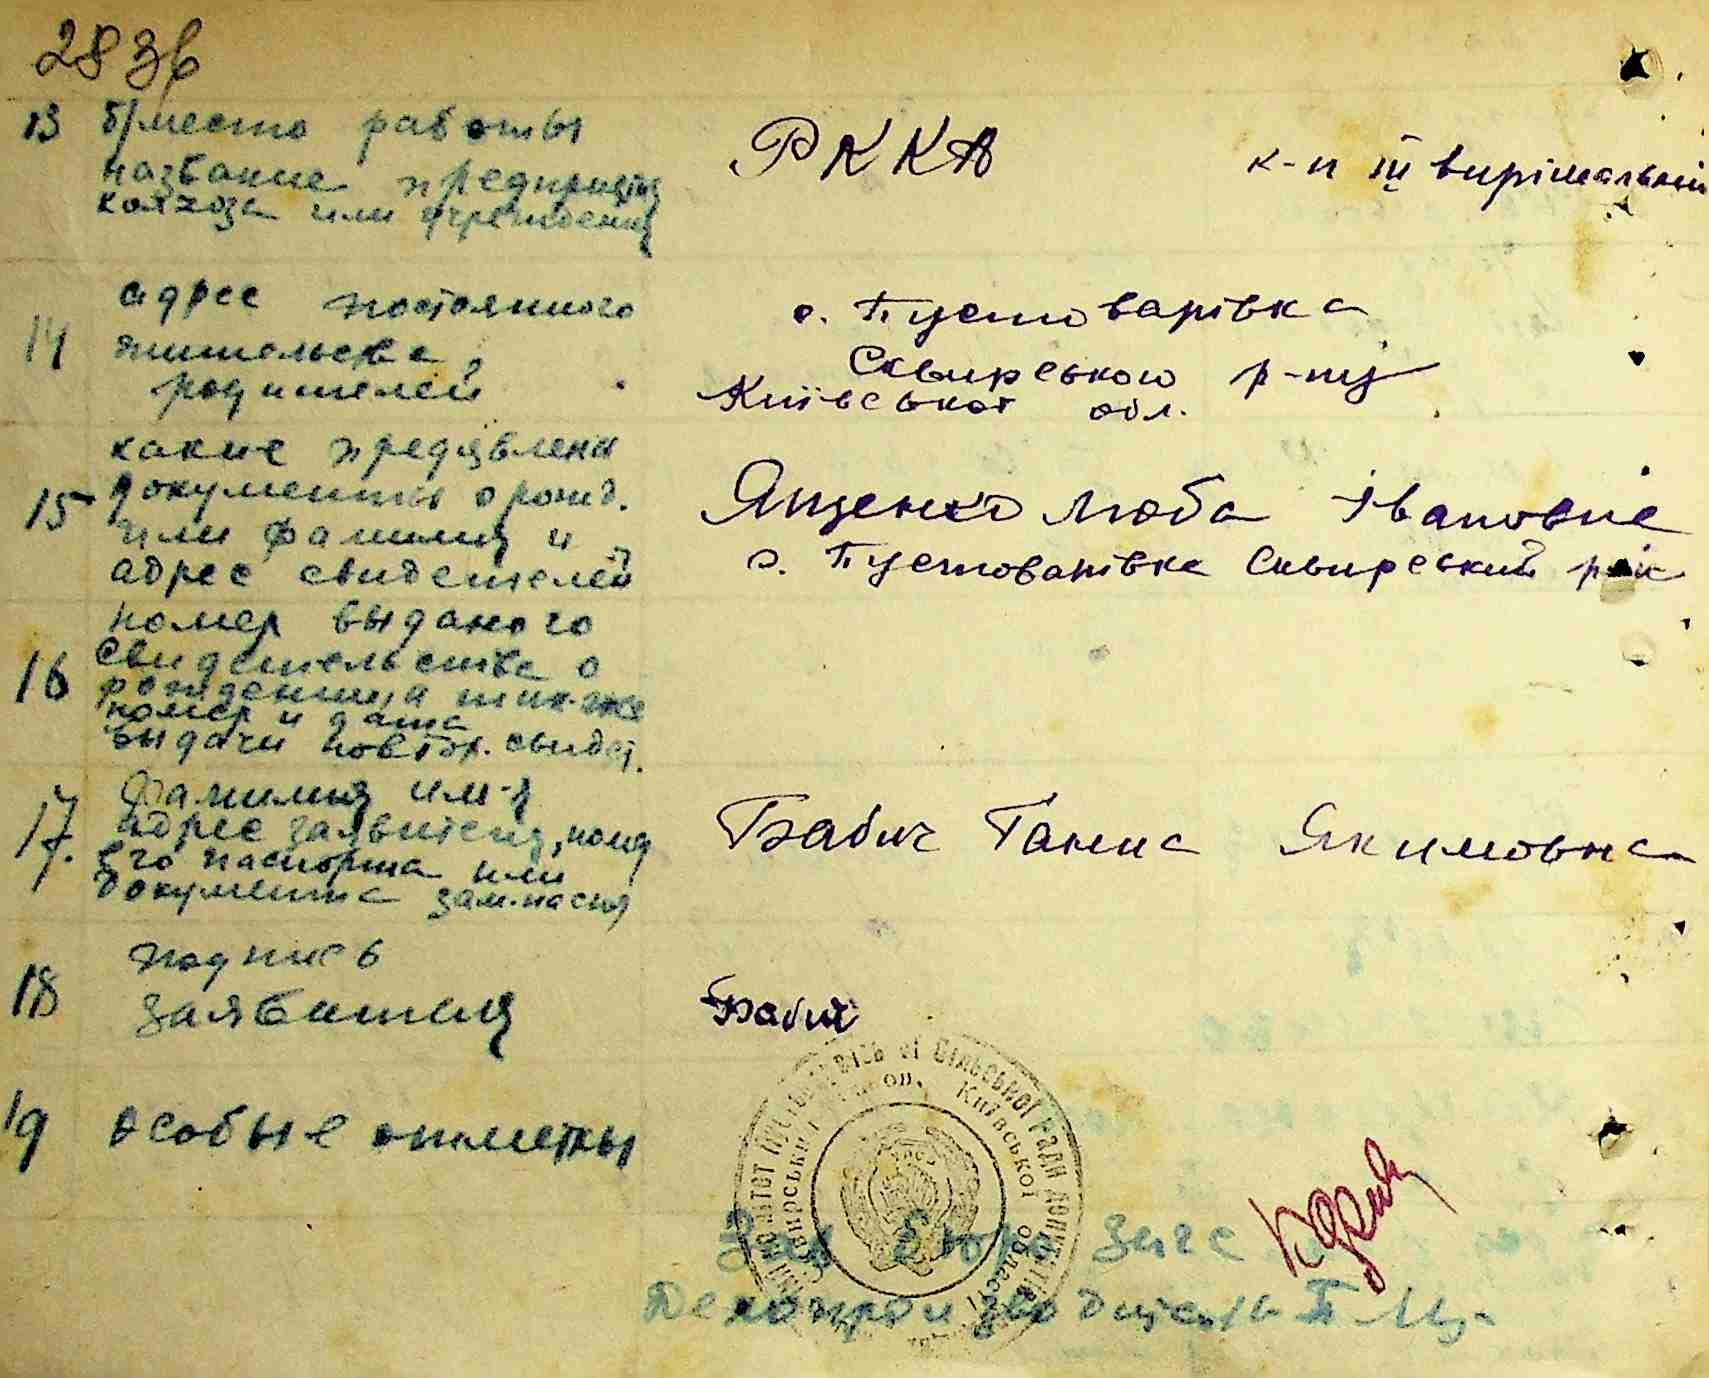 28 зв
13 б/место работы
название предприятия
колхоза или учреждения
РККА к-п III вирішальний
адрес постоянного
14 жительства
родителей
с. Пустоварівка
Сквирського р-ну
Київської обл.
какие предявлены
15 документы о рожд.
или фамилия и
адрес свидетелей
Ященко Люба Івановне
с. Пустоварівка Сквирський р-н
номер выданого
16 свидетельства о
рождении, а так-же
номер и дата
выдачи повтор. свидет.
фамилия им-я
17. адрес заявителя, номер
его паспорта или
документа зам. паспор
Бабич Ганна Якимовна
18 подпись
заявителя
Бабич
19 особые отметки
сільської ради депутатів
Київської області
Зав бюро Загс
Делопроизводитель